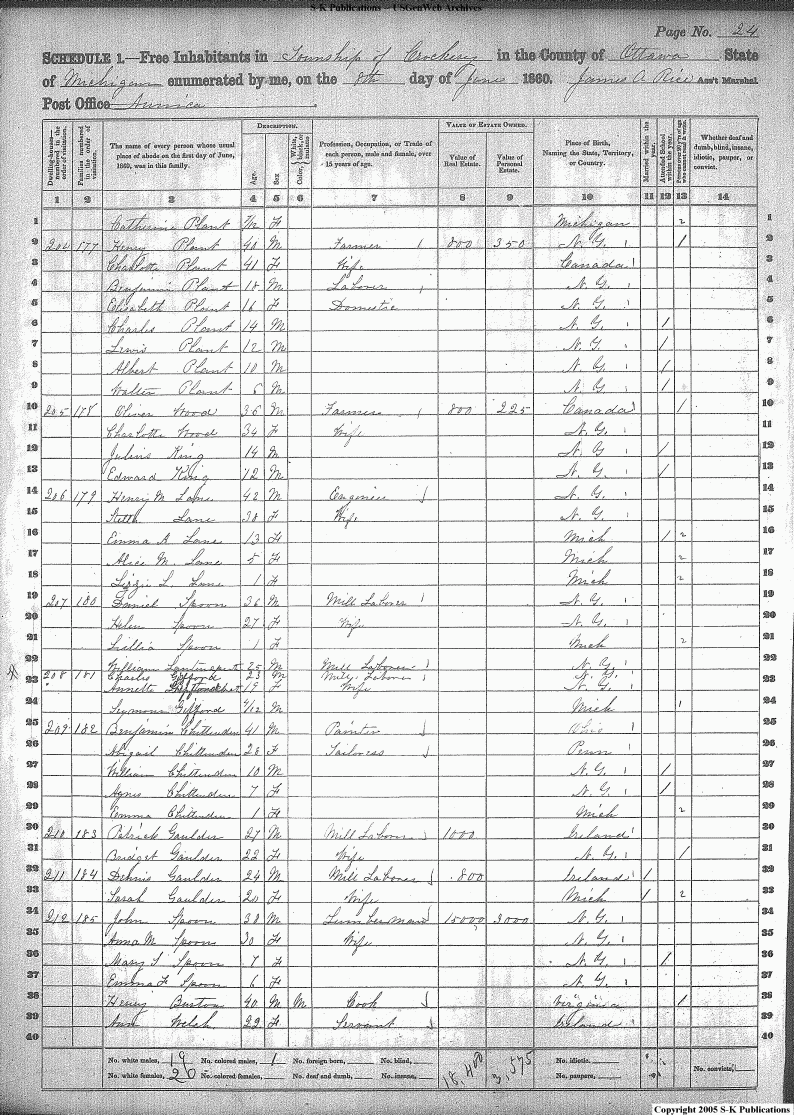 S-K Publications – USGenWeb Archives
Page No. 24
SCHEDULE 1.—Free Inhabitants in Township of Crockery in the County of Ottawa State
of Michigan enumerated by me, on the 8th day of June 1860. James A. Rice Ass't Marshal
Post Office Nunica
Dwelling-houses—numbered in the order of visitation.
Families numbered in the order of visitation.
The name of every person whose usual place of abode on the first day of June, 1860, was in this family.
DESCRIPTION.
Age.
Sex
Color, White, black, or mulatto
Profession, Occupation, or Trade of each person, male and female, over 15 years of age.
VALUE OF ESTATE OWNED.
Value of Real Estate.
Value of Personal Estate.
Place of Birth, Naming the State, Territory, or Country.
Married within the year.
Attended School within the year.
Whether deaf and dumb, blind, insane, idiotic, pauper, or convict.
1 2 3 4 5 6 7 8 9 10 11 12 13 14
1 Catherine Plant F Michigan 2 1
2 204 177 Henry Plant 40 M Farmer 800 350 N. Y. 1 2
3 Charlotte Plant 41 F Wife Canada 3
4 Benjamin Plant 18 M Laborer N. Y. 4
5 Elisabeth Plant 16 F Domestic N. Y. 5
6 Charles Plant 14 M N. Y. 1 6
7 Lewis Plant 12 M N. Y. 1 7
8 Albert Plant 10 M N. Y. 1 8
9 Walter Plant 6 M N. Y. 1 9
10 205 178 Oliver Wood 36 M Farmer 800 225 Canada 1 10
11 Charlotte Wood 34 F Wife N. Y. 11
12 Julius King 14 M N. Y. 1 12
13 Edward King 12 M N. Y. 1 13
14 206 179 Henry M Lane 42 M Engineer N. Y. 14
15 Lane 38 F Wife N. Y. 15
16 Emma A Lane 13 F Mich 1 2 16
17 Alice M. Lane 5 F Mich 2 17
18 Lizzie L. Lane 1 F Mich 2 18
19 207 180 Daniel Spoon 36 M Mill Laborer N. Y. 19
20 Helen Spoon 27 F Wife N. Y. 20
21 Lillia Spoon 1 F Mich 2 21
22 William 25 M Mill Laborer N. Y. 22
23 208 181 Charles Gifford 23 M Mill Laborer N. Y. 23
Annette 19 F Wife N. Y.
24 Seymour Gifford M Mich 1 24
25 209 182 Benjamin Chittenden 41 M Painter Ohio 25
26 Abigail Chittenden 28 F Tailoress Penn 26
27 William Chittenden 10 M N. Y. 1 27
28 Agnes Chittenden 7 F N. Y. 1 28
29 Emma Chittenden 1 F Mich 2 29
30 210 183 Patrick Gaulder 27 M Mill Labour 1000 Ireland 30
31 Bridget Gaulder 22 F Wife N. Y. 1 31
32 211 184 Dennis Gaulder 24 M Mill Laborer 800 Ireland 1 32
33 Sarah Gaulder 20 F Wife Mich 1 2 33
34 212 185 John Spoon 38 M Lumberman 15000 3000 N. Y. 34
35 Anna M Spoon 30 F Wife N. Y. 35
36 Mary Spoon 7 F N. Y. 1 36
37 Emma F Spoon 6 F N. Y. 37
38 Henry Burton 40 M M Cook Virginia 1 38
39 Ann Welch 22 F Servant Ireland 39
40 40
No. white males, 19 No. colored males, 1 No. foreign born, No. blind, 18,400 3,575 No. idiotic. No. convict,
No. white females, 20 No. colored females, No. deaf and dumb, No. insane, No. paupers,
Copyright 2005 S-K Publications